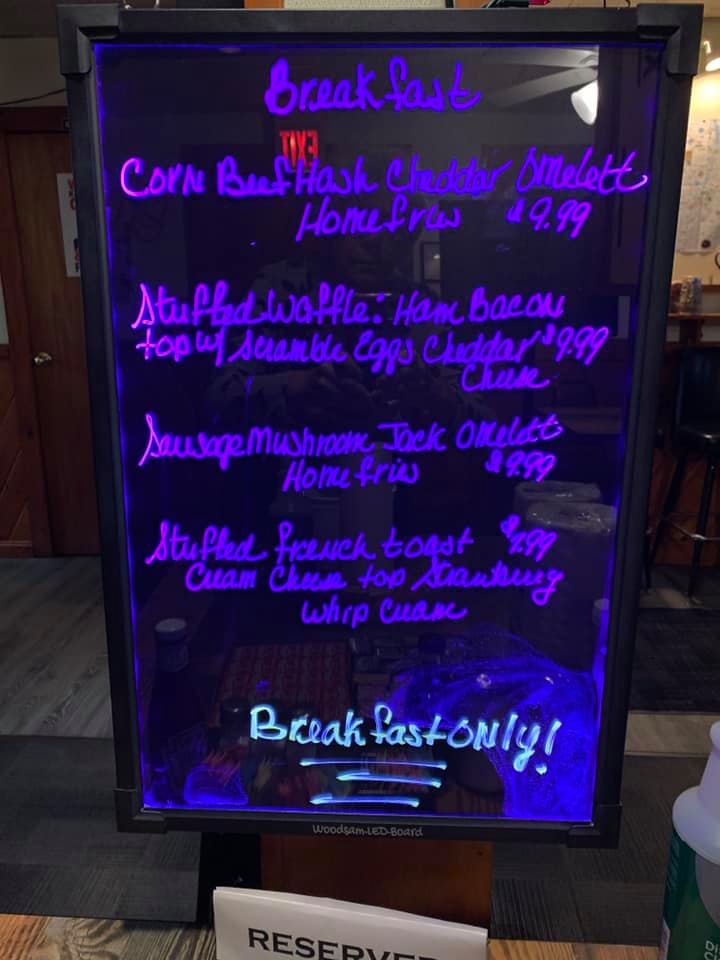 Breakfast
EXIT
Corn Beef Hash Cheddar Omelett
Homefries $9.99
Stuffed Waffle: Ham Bacon
top w/ Scramble Eggs Cheddar $9.99
Cheese
Sausage Mushroom Jack Omelett
Home fries $9.99
Stuffed French toast $9.99
Cream Cheese top Strawberry
Whip Cream
Breakfast ONly!
Woodsam-LED-Board
RESERVED